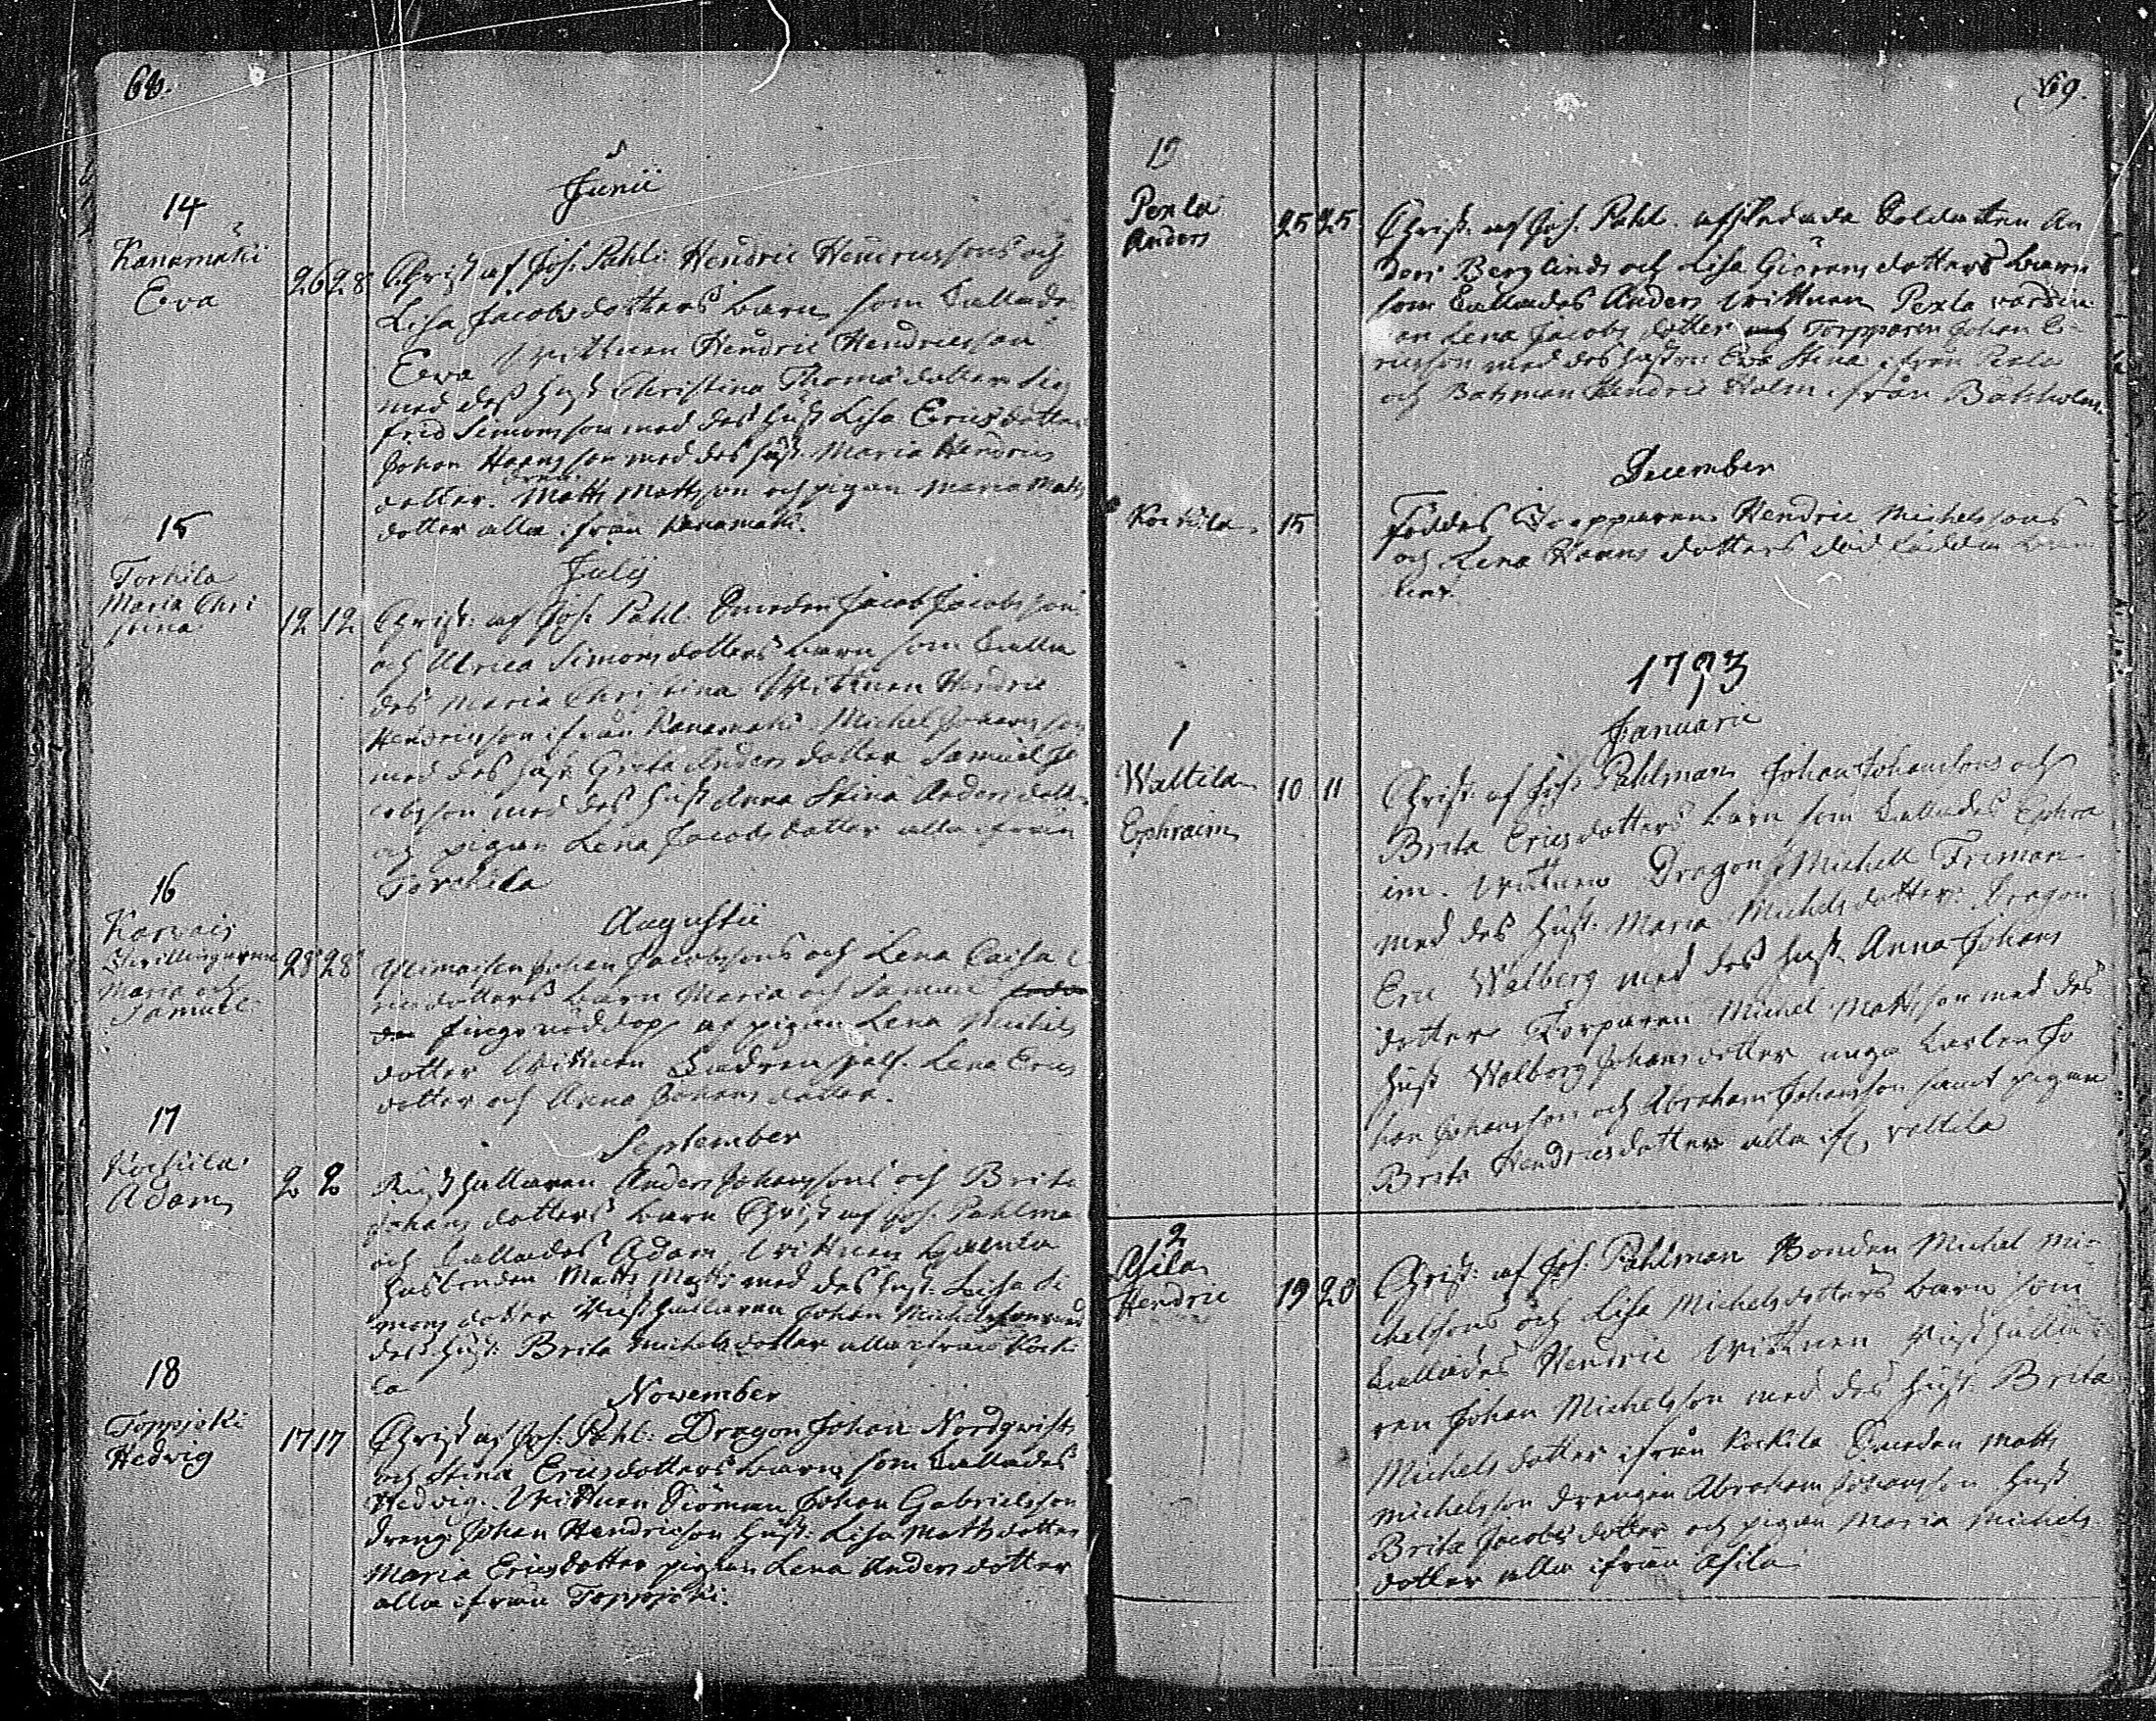 68.
Junii
14
Kanamäki
Eva
26 28
Christ af Joh. Pahl: Hendric Henricssons och
Lisa Jacobsdotters barn som kallade
Eva Wittnen Hendric Hendricsson
med dess hust Christina Thomadotter Sig
frid Simonsson med des hust Lisa Ericsdotter
Johan Hansson med des hust. Maria Hendrics
dotter. dreng Matts Mattsson och pigan Maria Matts
dotter alla ifrån Kanamäki.
Julij
15
Torkila
Maria Chri
stina
12 12
Christ. af Joh. Pahl. Smeden Jacob Jacobsson
och Ulrica Simonsdotters barn som kalla
des Maria Christina Wittnen Hendric
Hendricsson ifrån Kanamäki Michel Johansson
med des hust Greta Andersdotter Samuel Ja
cobsson med des hust Anna Stina Andersdott
och pigan Lena Jacobsdotter alla ifrån
Torckila
Augustii
16
Karvais
Maria och
Samuel
28 28
Johan Jacobssons och Lena Caisa E
ricsdotters barn Maria och Samuel
fingo nöddop af pigan Lena Michels
dotter Wittnen Fadren sielf. Lena Erics
dotter och Anna Johansdotter.
September
17
Kockila
Adam
2 2
Rusthallaren Anders Johanssons och Brita
Johansdotters barn Christ af Joh. Pahlma
och kallades Adam Wittnen
husbonden Matts Matts: med des hust. Lisa Si
monsdotter Rusthallaren Johan Michelsson med
des hust: Brita Michelsdotter alla ifrån Kocki
la
November
18
Toppjoki
Hedvig
17 17
Christ af Joh. Pahl: Dragon Johan Nordqwists
och Stina Ericsdotters barn som kallades
Hedvig. Wittnen Siöman Johan Gabrielsson
dreng Johan Hendricsson hust: Lisa Mattsdotter
Maria Ericsdotter pigan Lena Andersdotter
alla ifrån Toppjoki.
69.
19
Pexla
Anders
25 25
Christ. af Joh. Pahl. afskedade Soldaten An
ders Berglinds och Lisa Giöransdotters barn
som kallades Anders Wittnen Pexla vördin
an Lena Jacobsdotter och Torpparen Johan E
ricsson med des hustru Eva Stina ifrån Pexla
och Batsman Hendric Holm ifrån Båtholm.
December
Kockila
15
Föddes Torpparen Hendric Michelssons
och Lena Hansdotters död födda
1793
Januarii
1
Waltila
Ephraim
10 11
Christ. af Joh Pahlman Johan Johanssons och
Brita Ericsdotters barn som kallades Ephra
im. Wittnen Dragon Michell Friman
med des hust. Maria Michelsdotter. Dragon
Eric Walberg med des hust. Anna Johans
dotter Torparen Michel Mattsson med des
hust Walborg Johansdotter unga karlen Jo
han Johansson och Abraham Johansson samt pigan
Brita Hendricsdotter alla if. valtila
2
Asila
Hendric
19 20
Christ. af Joh. Pahlman Bonden Michel Mi
chelsons och Lisa Michelsdotters barn som
kallades Hendric Wittnen Rusthalla
ren Johan Michelsson med des hust: Brita
Michelsdotter ifrån Kockila Smeden Matts
Michelsson drengen Abraham Johansson hust
Brita Jacobsdotter och pigan Maria Michels
dotter alla ifrån Asila